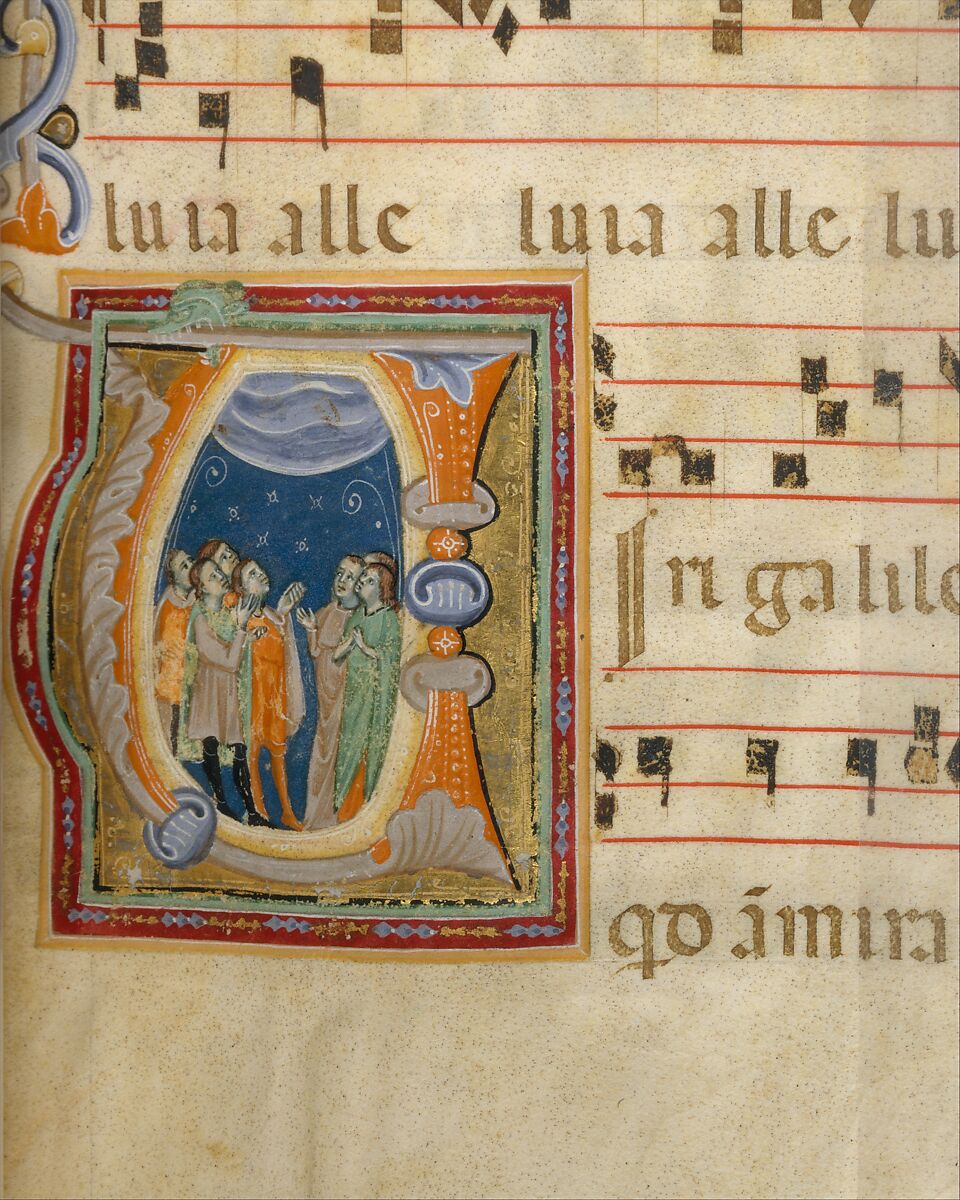 luia alle luia alle lu
VIri galile
qd āmira